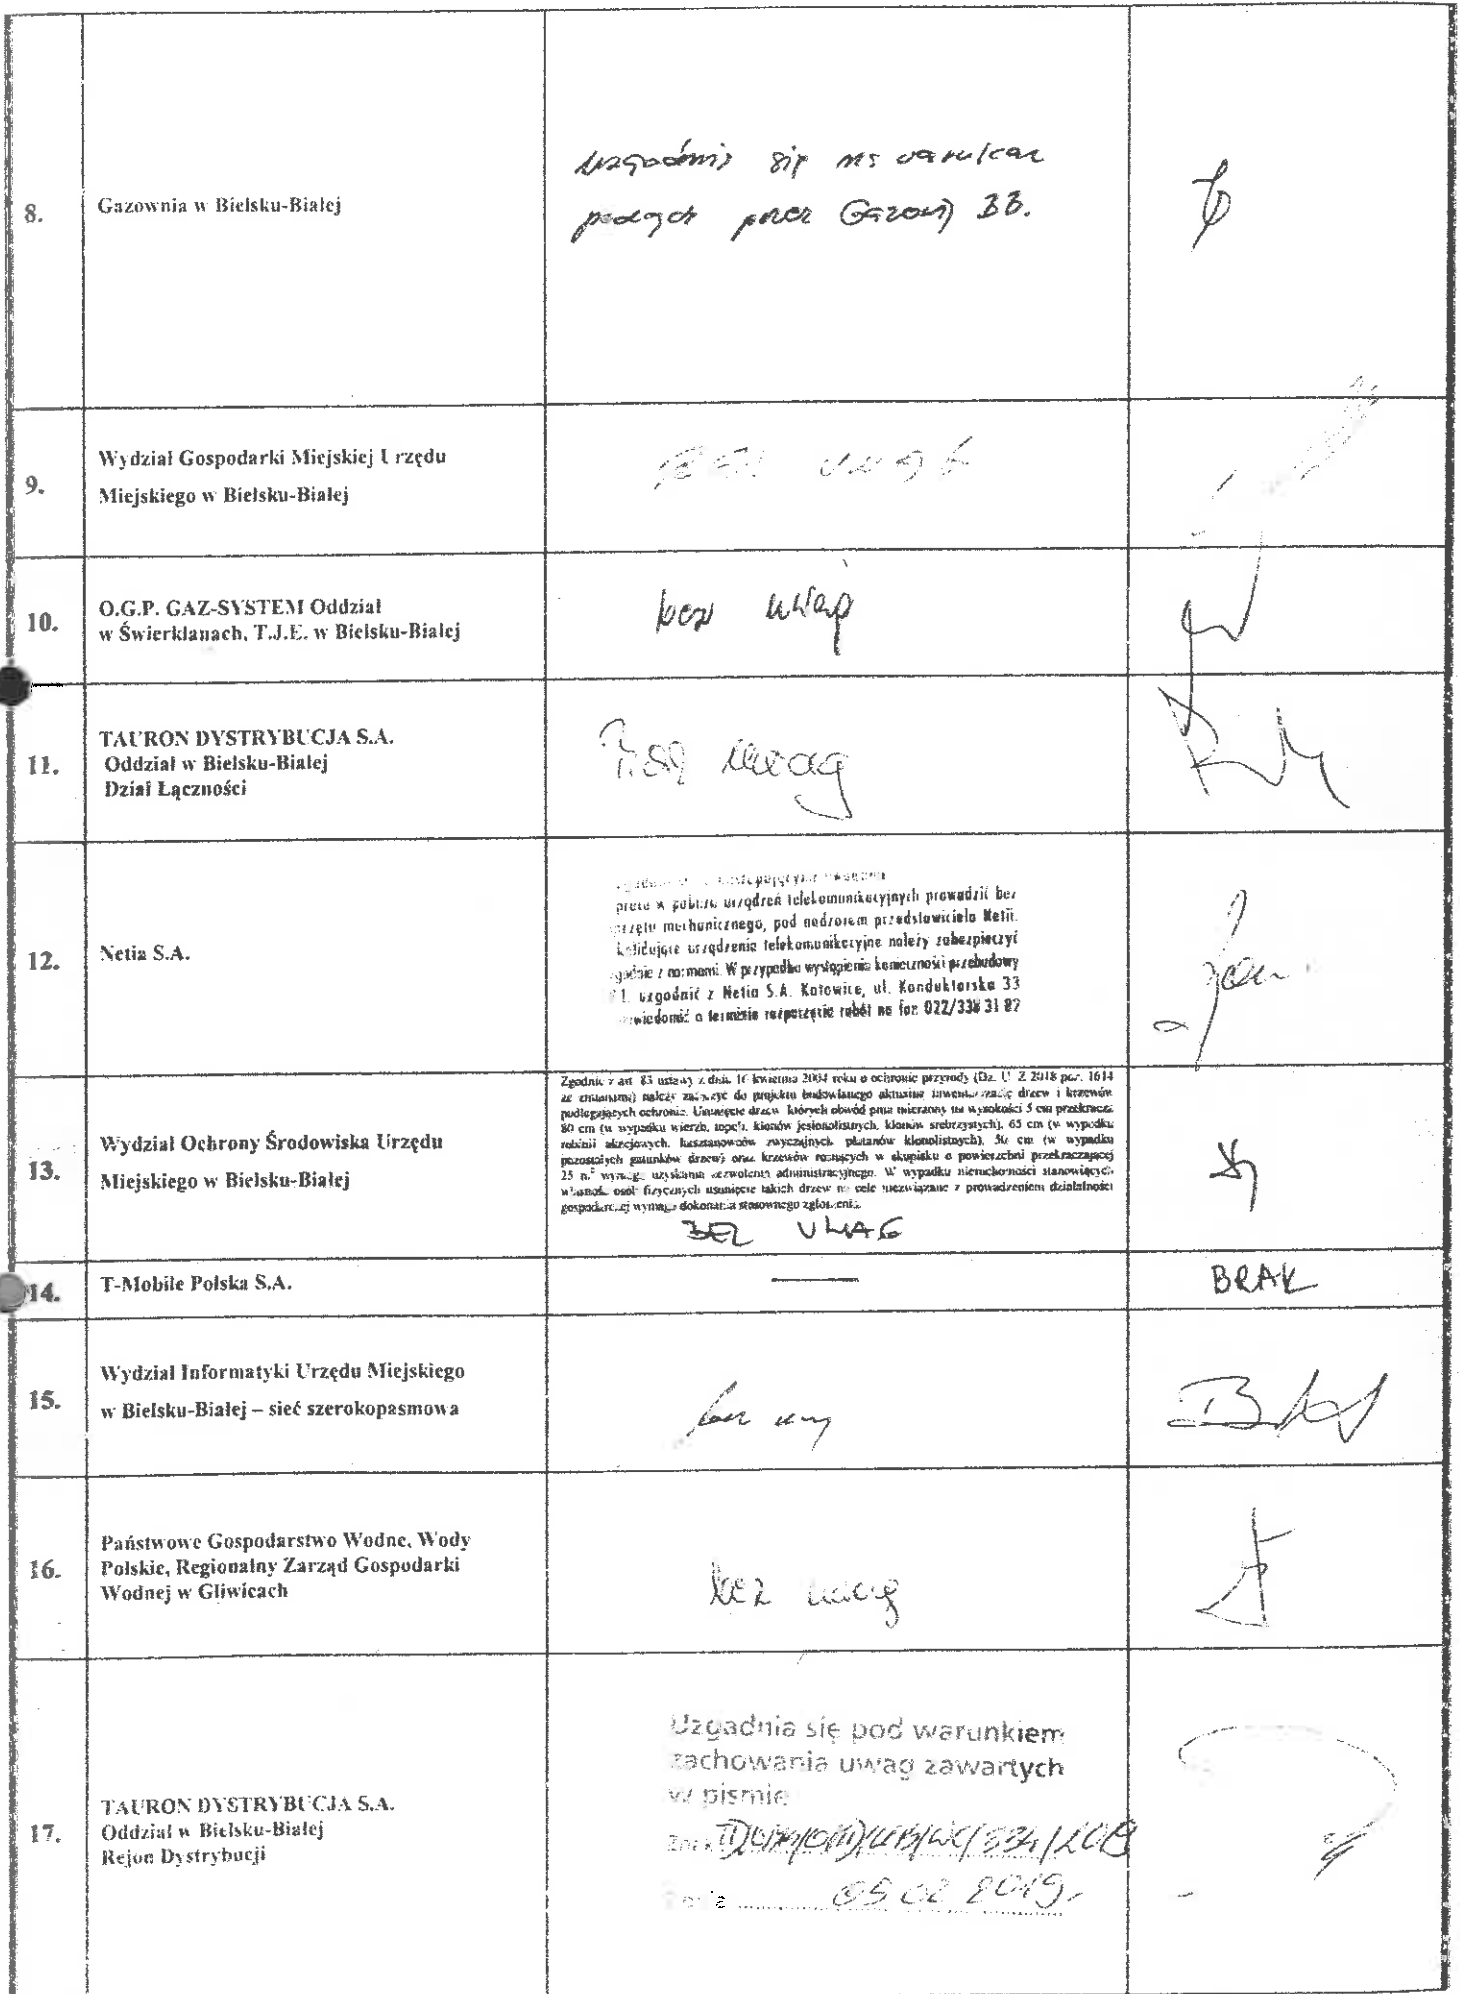 8.
Gazownia w Bielsku-Białej
uzgodnić się
przez Gazow BB.
9.
Wydział Gospodarki Miejskiej Urzędu
Miejskiego w Bielsku-Białej
BEZ UWAG
10.
O.G.P. GAZ-SYSTEM Oddział
w Świerklanach, T.J.E. w Bielsku-Białej
bez uwag
11.
TAURON DYSTRYBUCJA S.A.
Oddział w Bielsku-Białej
Dział Łączności
Bez uwag
12.
Netia S.A.
prace w pobliżu urządzeń telekomunikacyjnych prowadzić bez
sprzętu mechanicznego, pod nadzorem przedstawiciela Netii.
Kolidujące urządzenia telekomunikacyjne należy zabezpieczyć
zgodnie z normami. W przypadku wystąpienia konieczności przebudowy
uzgodnić z Netia S.A. Katowice, ul. Konduktorska 33
zawiadomić o terminie rozpoczęcia robót na fax 022/338 31 82
13.
Wydział Ochrony Środowiska Urzędu
Miejskiego w Bielsku-Białej
Zgodnie z art. 83 ustawy z dnia 16 kwietnia 2004 roku o ochronie przyrody (Dz. U. Z 2018 poz. 1614
ze zmianami) należy załączyć do projektu budowlanego aktualną inwentaryzację drzew i krzewów
podlegających ochronie. Usunięcie drzew, których obwód pnia mierzony na wysokości 5 cm przekracza
80 cm (w wypadku wierzb, topoli, klonów jesionolistnych, klonów srebrzystych), 65 cm (w wypadku
robinii akacjowych, kasztanowców zwyczajnych, platanów klonolistnych), 50 cm (w wypadku
pozostałych gatunków drzew) oraz krzewów rosnących w skupisku o powierzchni przekraczającej
25 m² wymaga uzyskania zezwolenia administracyjnego. W wypadku nieruchomości stanowiących
własność osób fizycznych usunięcie takich drzew na cele niezwiązane z prowadzeniem działalności
gospodarczej wymaga dokonania stosownego zgłoszenia.
BEZ UWAG
14.
T-Mobile Polska S.A.
BRAK
15.
Wydział Informatyki Urzędu Miejskiego
w Bielsku-Białej – sieć szerokopasmowa
bez uwag
16.
Państwowe Gospodarstwo Wodne, Wody
Polskie, Regionalny Zarząd Gospodarki
Wodnej w Gliwicach
bez uwag
17.
TAURON DYSTRYBUCJA S.A.
Oddział w Bielsku-Białej
Rejon Dystrybucji
Uzgadnia się pod warunkiem
zachowania uwag zawartych
w piśmie
05 02 2019r